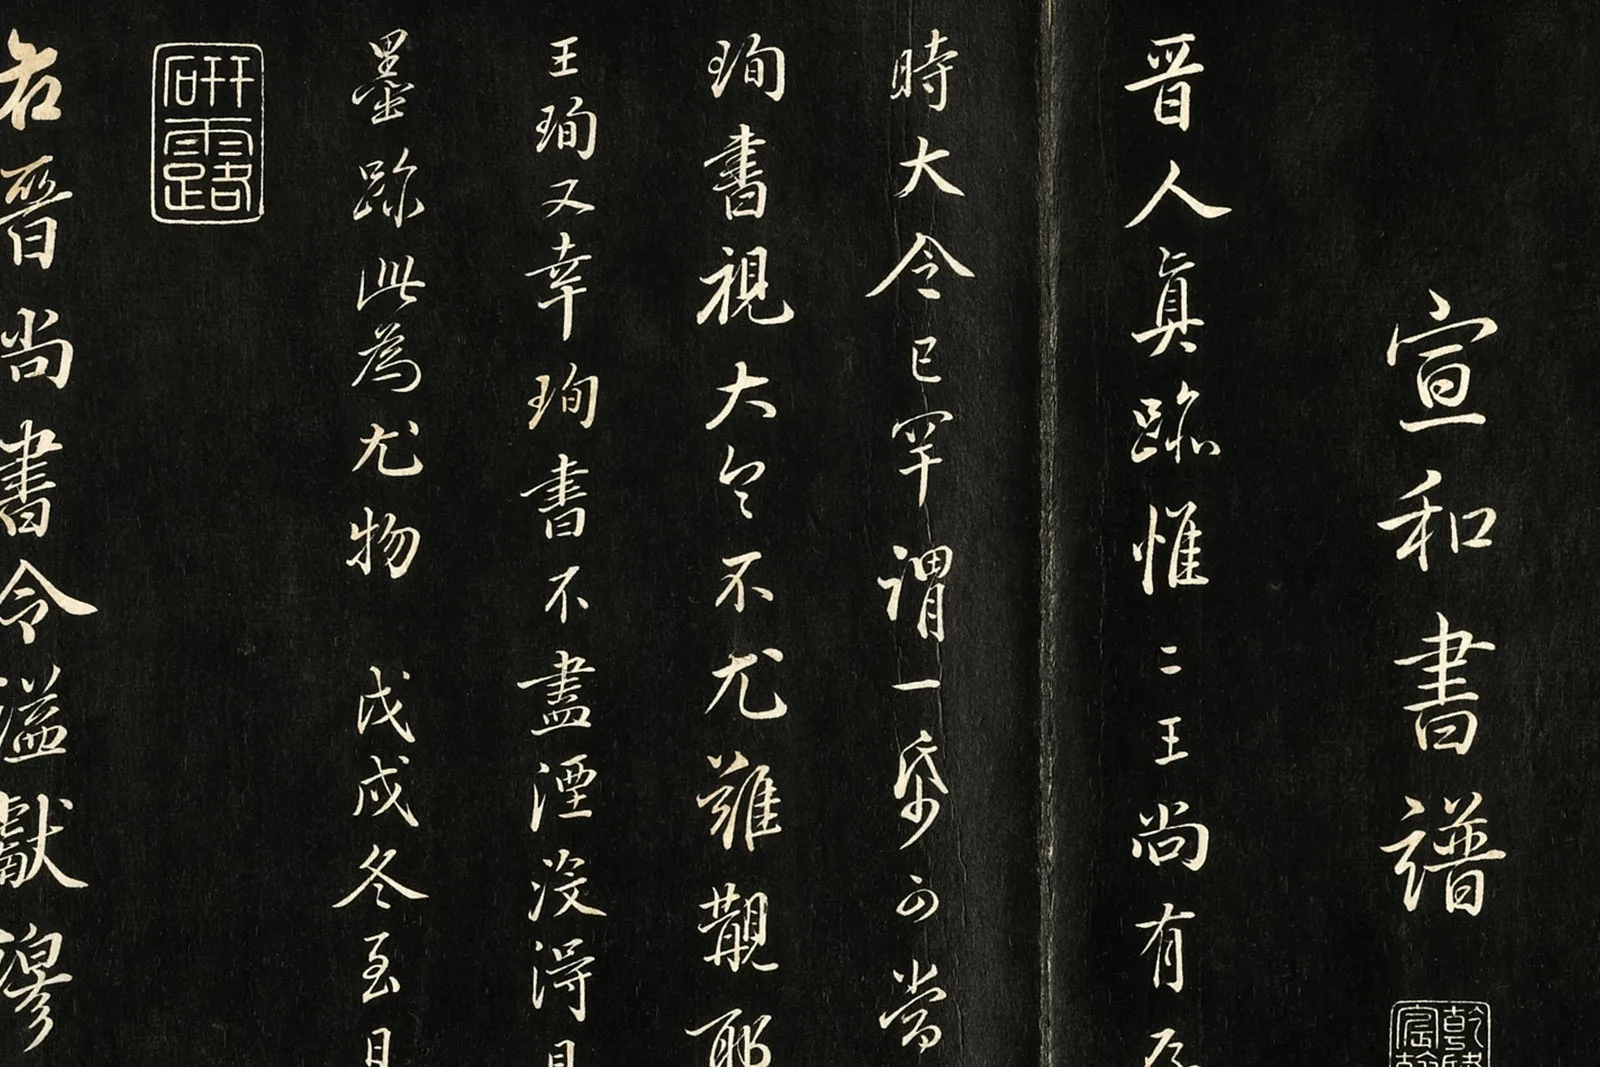 宣和書譜
晉人眞跡惟二王尚有
時大令已罕謂一帋可當
珣書視大令不尤難覯耶
王珣又幸珣書不盡湮沒得見
墨跡此為尤物 戊戌冬至日
研露
右晉尚書令謚獻穆